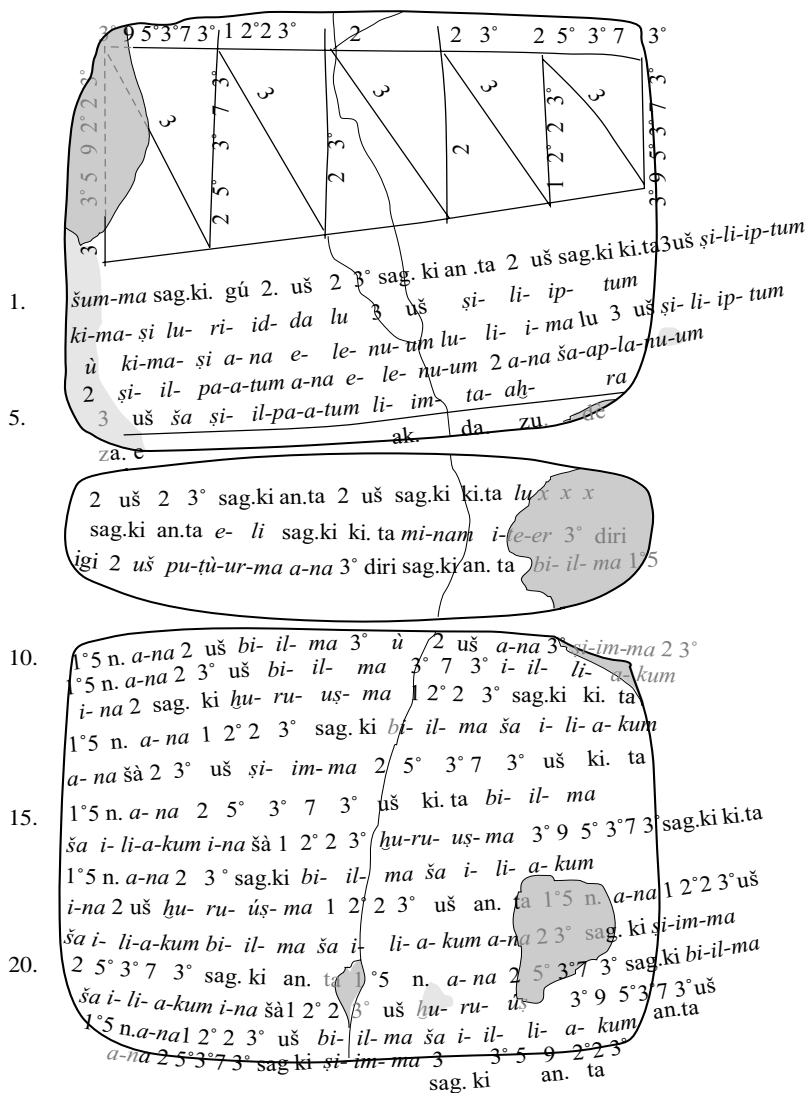 3° 9 5°3°7 3° 1 2°2 3° 2 2 3° 2 5° 3° 7 3°
3° 5 9 2° 2 3°
3
3
2 5° 3° 7 3°
3
2 3°
3
2
3
1 2° 2 3°
3
3° 9 5° 3° 7 3°
1. šum-ma sag.ki. gú 2. uš 2 3° sag. ki an .ta 2 uš sag.ki ki.ta3uš ṣi-li-ip-tum
ki-ma- ṣi lu- ri- id- da lu 3 uš ṣi- li- ip- tum
ù ki-ma- ṣi a- na e- le- nu- um lu- li- i- ma lu 3 uš ṣi- li- ip- tum
2 ṣi- il- pa-a-tum a-na e- le- nu-um 2 a-na ša-ap-la-nu-um
5. 3 uš ša ṣi- il-pa-a-tum li- im- ta- aḫ- ra
za. e ak. da. zu. dè
2 uš 2 3° sag.ki an.ta 2 uš sag.ki ki.ta lu x x x
sag.ki an.ta e- li sag.ki ki. ta mi-nam i-te-er 3° diri
igi 2 uš pu-ṭù-ur-ma a-na 3° diri sag.ki an. ta bi- il- ma 1°5
10. 1°5 n. a-na 2 uš bi- il- ma 3° ù 2 uš a-na 3° ṣi-im-ma 2 3°
1°5 n. a-na 2 3° uš bi- il- ma 3° 7 3° i- il- li- a- kum
i- na 2 sag. ki ḫu- ru- uṣ- ma 1 2° 2 3° sag.ki ki. ta
1°5 n. a- na 1 2° 2 3° sag. ki bi- il- ma ša i- li- a- kum
a- na šà 2 3° uš ṣi- im- ma 2 5° 3°7 3° uš ki. ta
15. 1°5 n. a- na 2 5° 3° 7 3° uš ki. ta bi- il- ma
ša i- li-a-kum i-na šà 1 2° 2 3° ḫu-ru- uṣ- ma 3° 9 5° 3°7 3° sag.ki ki.ta
1°5 n. a-na 2 3 ° sag.ki bi- il- ma ša i- li- a- kum
i-na 2 uš ḫu- ru- úṣ- ma 1 2° 2 3° uš an. ta 1°5 n. a-na 1 2°2 3°uš
ša i- li-a-kum bi- il- ma ša i- li- a- kum a-na 2 3° sag. ki ṣi-im-ma
20. 2 5° 3°7 3° sag. ki an. ta 1 °5 n. a- na 2 5° 3°7 3° sag.ki bi-il-ma
ša i- li- a-kum i-na šà1 2° 2 3° uš ḫu- ru- úṣ 3° 9 5°3°7 3°uš an.ta
1°5 n.a-na1 2° 2 3° uš bi- il- ma ša i- il- li- a- kum
a-na 2 5°3°7 3° sag ki ṣi- im- ma 3 3° 5 9 2°2 3° sag. ki an. ta